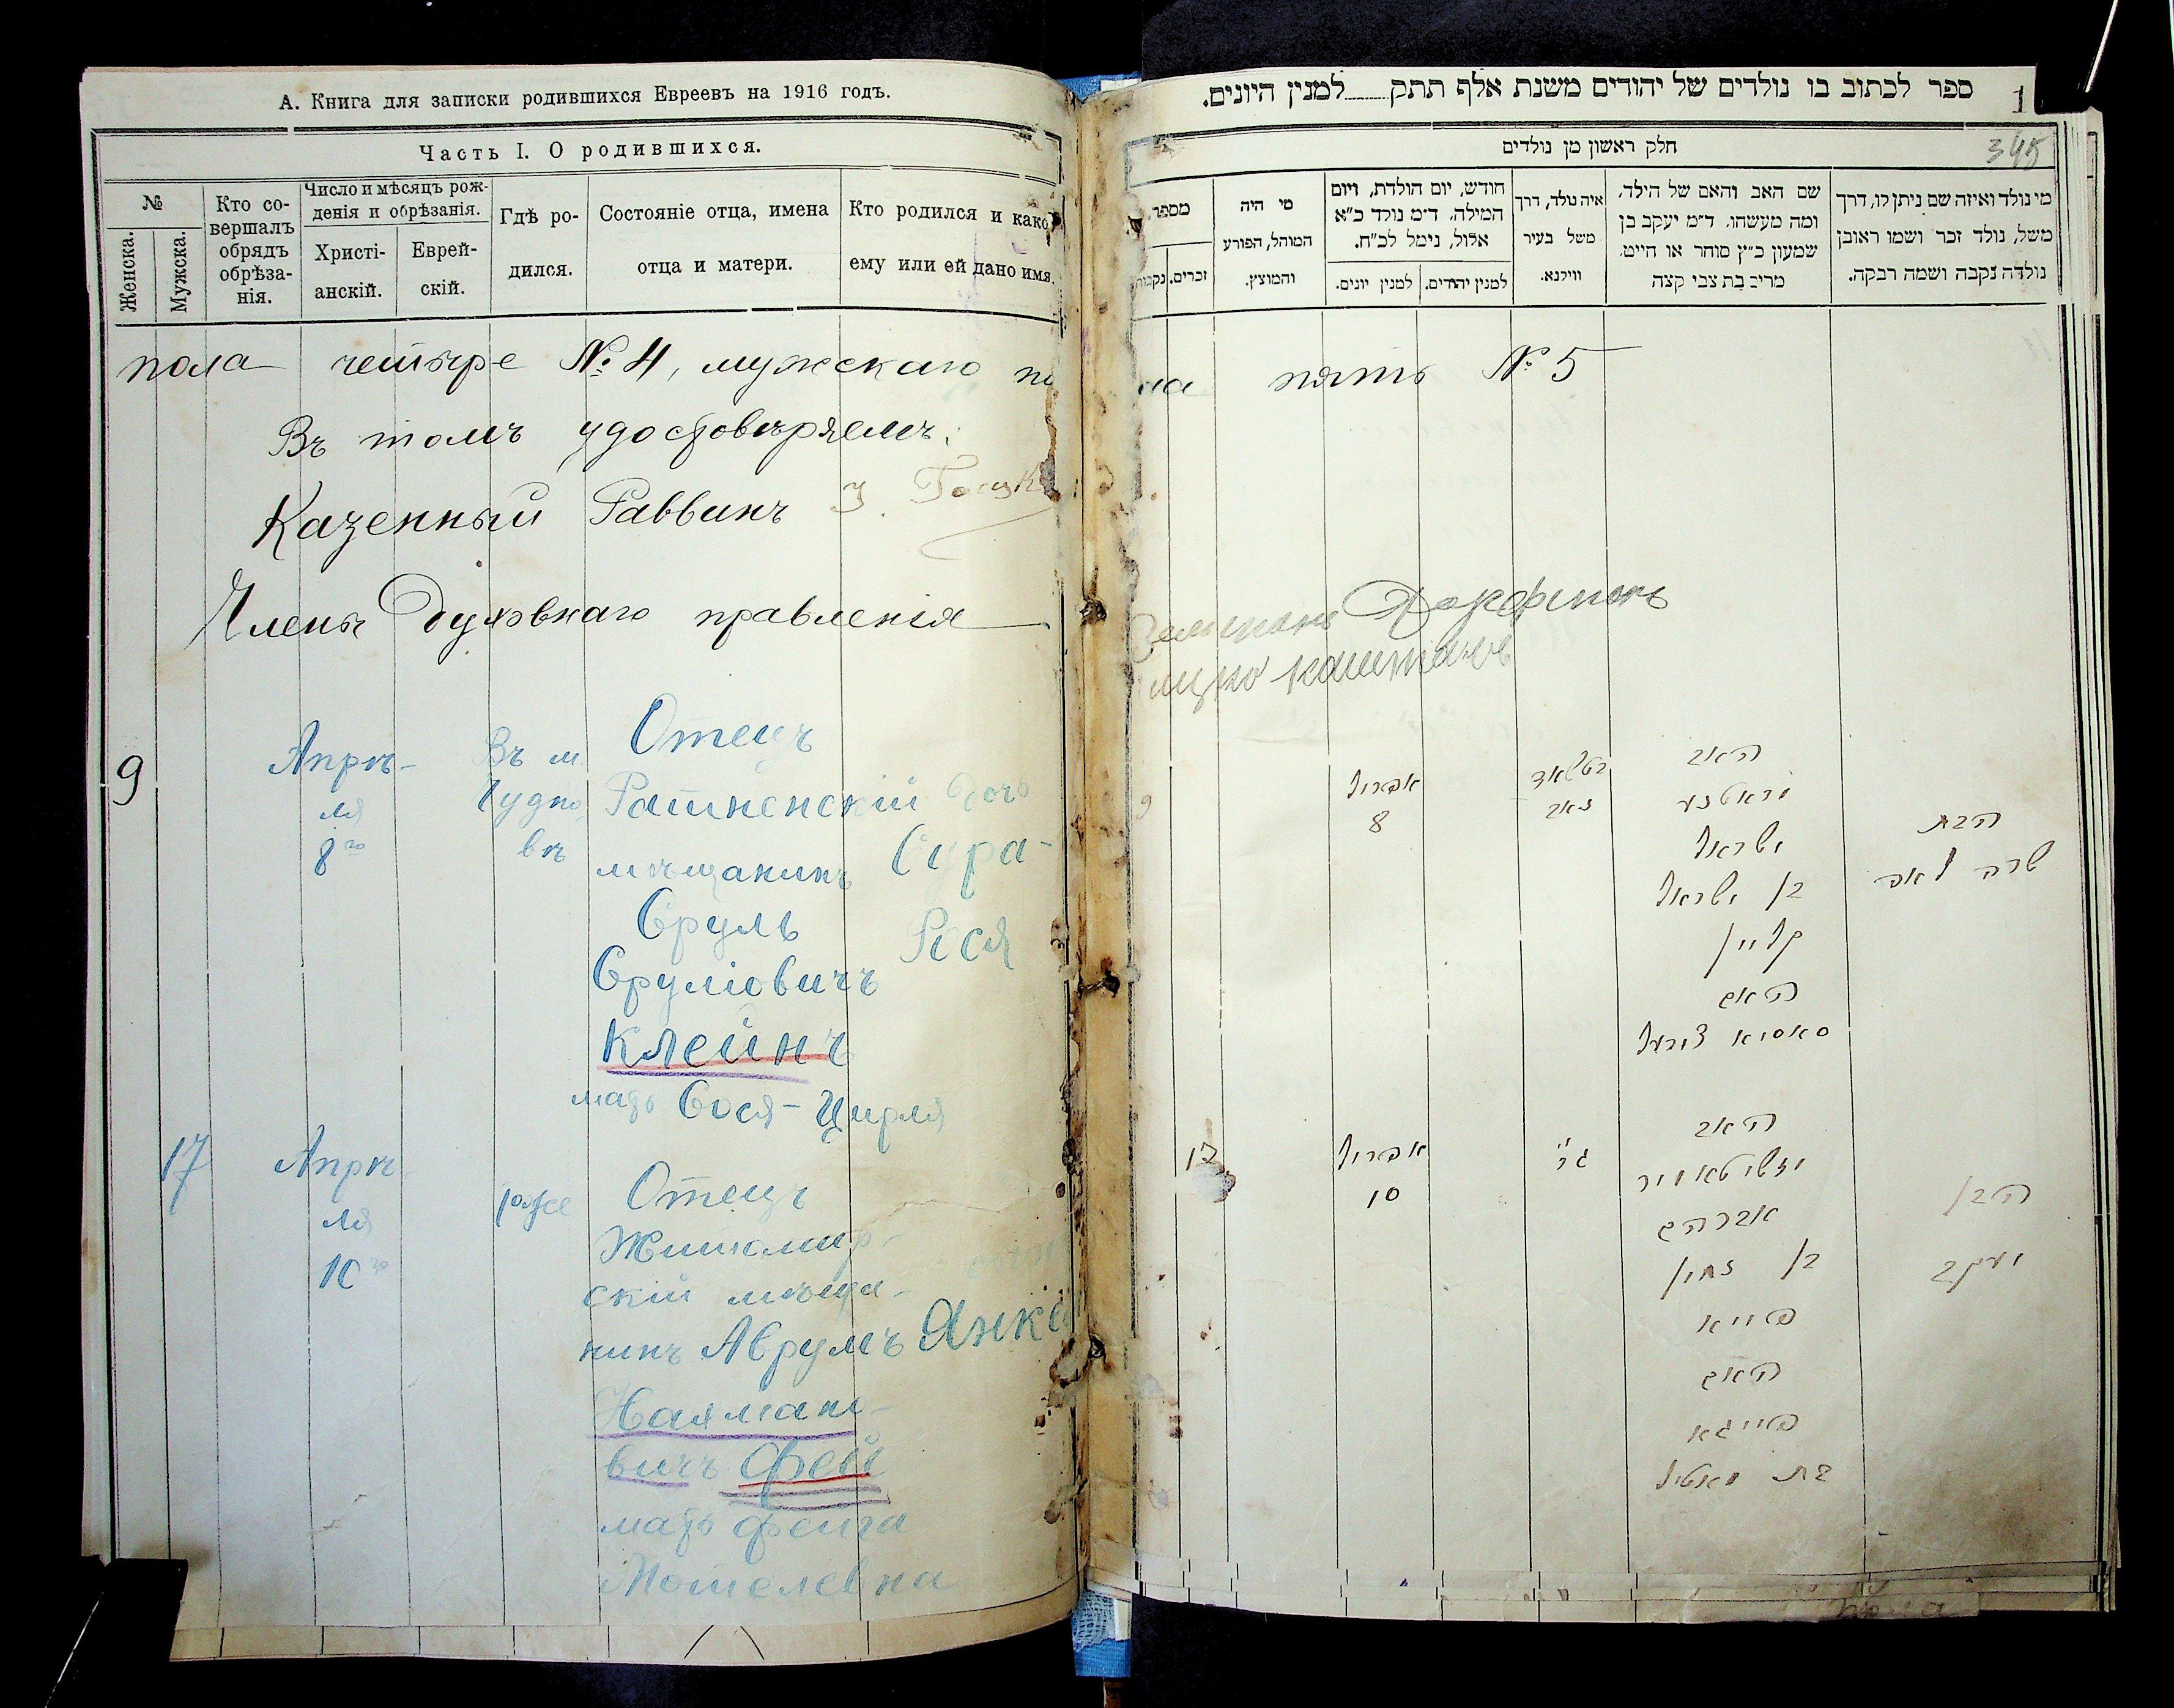 А. Книга для записки родившихся Евреевъ на 1916 годъ.
Часть I. О родившихся.
№
Женска.
Мужска.
Кто со-
вершалъ
обрядъ
обрѣза-
нія.
Число и мѣсяцъ рож-
денія и обрѣзанія.
Христі-
анскій.
Еврей-
скій.
Гдѣ ро-
дился.
Состояніе отца, имена
отца и матери.
Кто родился и како
ему или ей дано имя.
пола четыре № 4, мужскаго по
Въ томъ удостовѣряемъ:
Казенный Раввинъ
Члены Духовнаго правленія
9
Апрѣ-
ля
8го
Въ м.
Чудно
вѣ
Отецъ
Ратненскій
мѣщанинъ
Сруль
Сруліовичъ
Клейнъ
мать Сося-Цирля
дочь
Сура-
17
Апрѣ-
ля
10го
тоже
Отецъ
Житомир-
скій мѣща-
нинъ Аврумъ
Нахмано-
вичъ Фей
мать Фейга
Мошелевна
Янке
ספר לכתוב בו נולדים של יהודים משנת אלף תתק למנין היונים.
1
345
חלק ראשון מן נולדים
מספר.
זכרים.
נקבות
מי היה
המוהל, הפורע
והמוצץ.
חודש, יום הולדת, ויום
המילה. ד״מ נולד כ״א
אלול, נימל לכ״ח.
למנין יונים.
למנין יהודים.
איה נולד, דרך
משל בעיר
ווילנא.
שם האב והאם של הילד,
ומה מעשהו. ד״מ יעקב בן
שמעון כ״ץ סוחר או חייט,
מרים בת צבי קצה
מי נולד ואיזה שם ניתן לו, דרך
משל, נולד זכר ושמו ראובן
נולדה נקבה ושמה רבקה.
ла пять № 5
9
אפריל
8
האב
ישראל
בן ישראל
קליין
האם
סאסיא צירעל
הבת
שרה לאה
17
אפריל
10
האב
אברהם
בן נחמן
פייא
האם
פייגא
בת מאטיל
הבן
יעקב